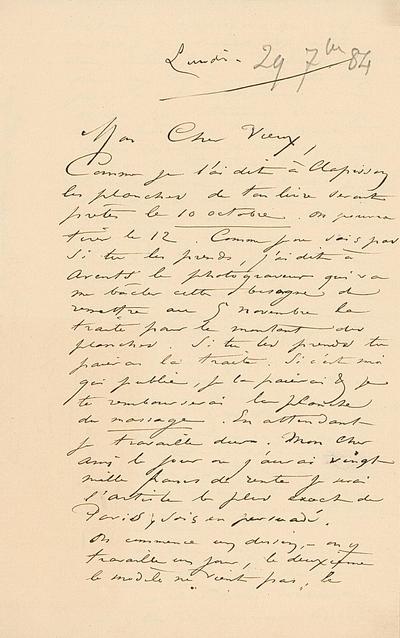 Lundi - 29 7bre 84
Mon Cher Vieux,
Comme je l'ai dit à Clapisson
les planches de ton livre seront
prêtes le 10 octobre. on pourra
tirer le 12 Comme je ne sais pas
si tu les prends, j'ai dit à
Arents le photograveur qui va
me bâcler cette besogne de
remettre au 5 novembre la
traite pour le montant des
planches. Si tu les prends tu
paieras la traite. Si c'est moi
qui publie, je la paierai & je
te rembourserai la planche
du massage. En attendant
je travaille dur. Mon cher
ami le jour où j'aurai vingt
mille francs de rente je serai
l'artiste le plus exact de
Paris, sois en persuadé.
On commence un dessin, - on y
travaille un jour, le deuxième
le modèle ne vient pas, le